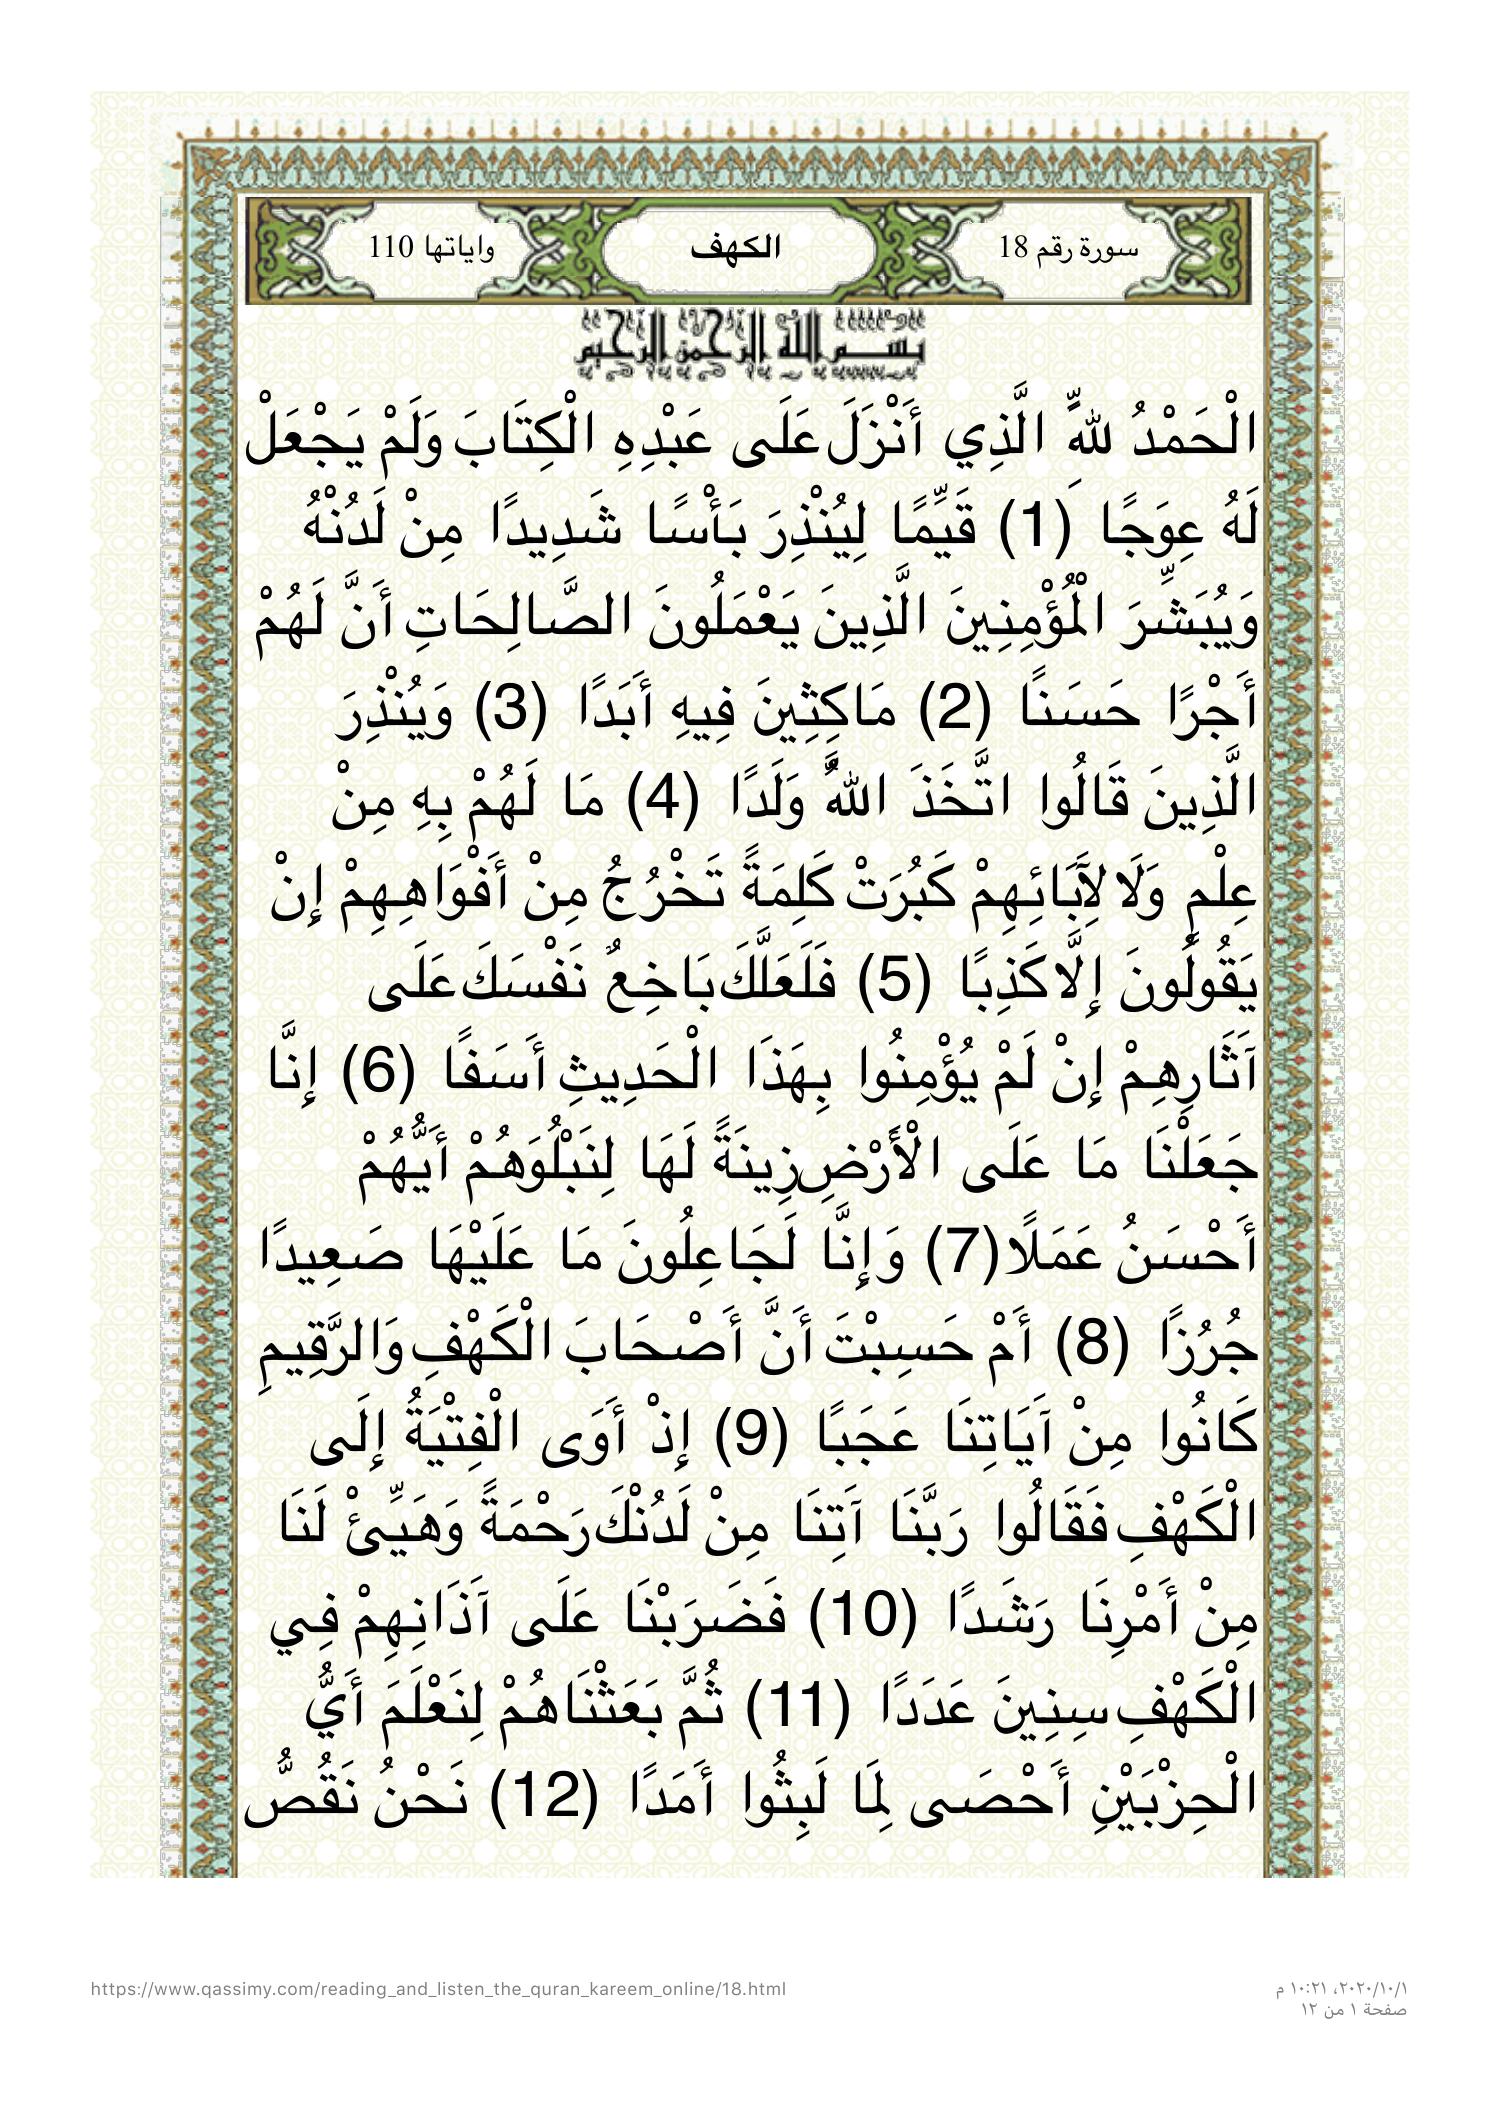 سورة رقم 18
الكهف
واياتها 110
بسم الله الرحمن الرحيم
الْحَمْدُ لِلَّهِ الَّذِي أَنْزَلَ عَلَى عَبْدِهِ الْكِتَابَ وَلَمْ يَجْعَلْ
لَهُ عِوَجًا (1) قَيِّمًا لِيُنْذِرَ بَأْسًا شَدِيدًا مِنْ لَدُنْهُ
وَيُبَشِّرَ الْمُؤْمِنِينَ الَّذِينَ يَعْمَلُونَ الصَّالِحَاتِ أَنَّ لَهُمْ
أَجْرًا حَسَنًا (2) مَاكِثِينَ فِيهِ أَبَدًا (3) وَيُنْذِرَ
الَّذِينَ قَالُوا اتَّخَذَ اللَّهُ وَلَدًا (4) مَا لَهُمْ بِهِ مِنْ
عِلْمٍ وَلَا لِآَبَائِهِمْ كَبُرَتْ كَلِمَةً تَخْرُجُ مِنْ أَفْوَاهِهِمْ إِنْ
يَقُولُونَ إِلَّا كَذِبًا (5) فَلَعَلَّكَ بَاخِعٌ نَفْسَكَ عَلَى
آَثَارِهِمْ إِنْ لَمْ يُؤْمِنُوا بِهَذَا الْحَدِيثِ أَسَفًا (6) إِنَّا
جَعَلْنَا مَا عَلَى الْأَرْضِ زِينَةً لَهَا لِنَبْلُوَهُمْ أَيُّهُمْ
أَحْسَنُ عَمَلًا (7) وَإِنَّا لَجَاعِلُونَ مَا عَلَيْهَا صَعِيدًا
جُرُزًا (8) أَمْ حَسِبْتَ أَنَّ أَصْحَابَ الْكَهْفِ وَالرَّقِيمِ
كَانُوا مِنْ آَيَاتِنَا عَجَبًا (9) إِذْ أَوَى الْفِتْيَةُ إِلَى
الْكَهْفِ فَقَالُوا رَبَّنَا آَتِنَا مِنْ لَدُنْكَ رَحْمَةً وَهَيِّئْ لَنَا
مِنْ أَمْرِنَا رَشَدًا (10) فَضَرَبْنَا عَلَى آَذَانِهِمْ فِي
الْكَهْفِ سِنِينَ عَدَدًا (11) ثُمَّ بَعَثْنَاهُمْ لِنَعْلَمَ أَيُّ
الْحِزْبَيْنِ أَحْصَى لِمَا لَبِثُوا أَمَدًا (12) نَحْنُ نَقُصُّ
https://www.qassimy.com/reading_and_listen_the_quran_kareem_online/18.html
٢٠٢٠/١٠/١، ١٠:٢١ م
صفحة ١ من ١٢